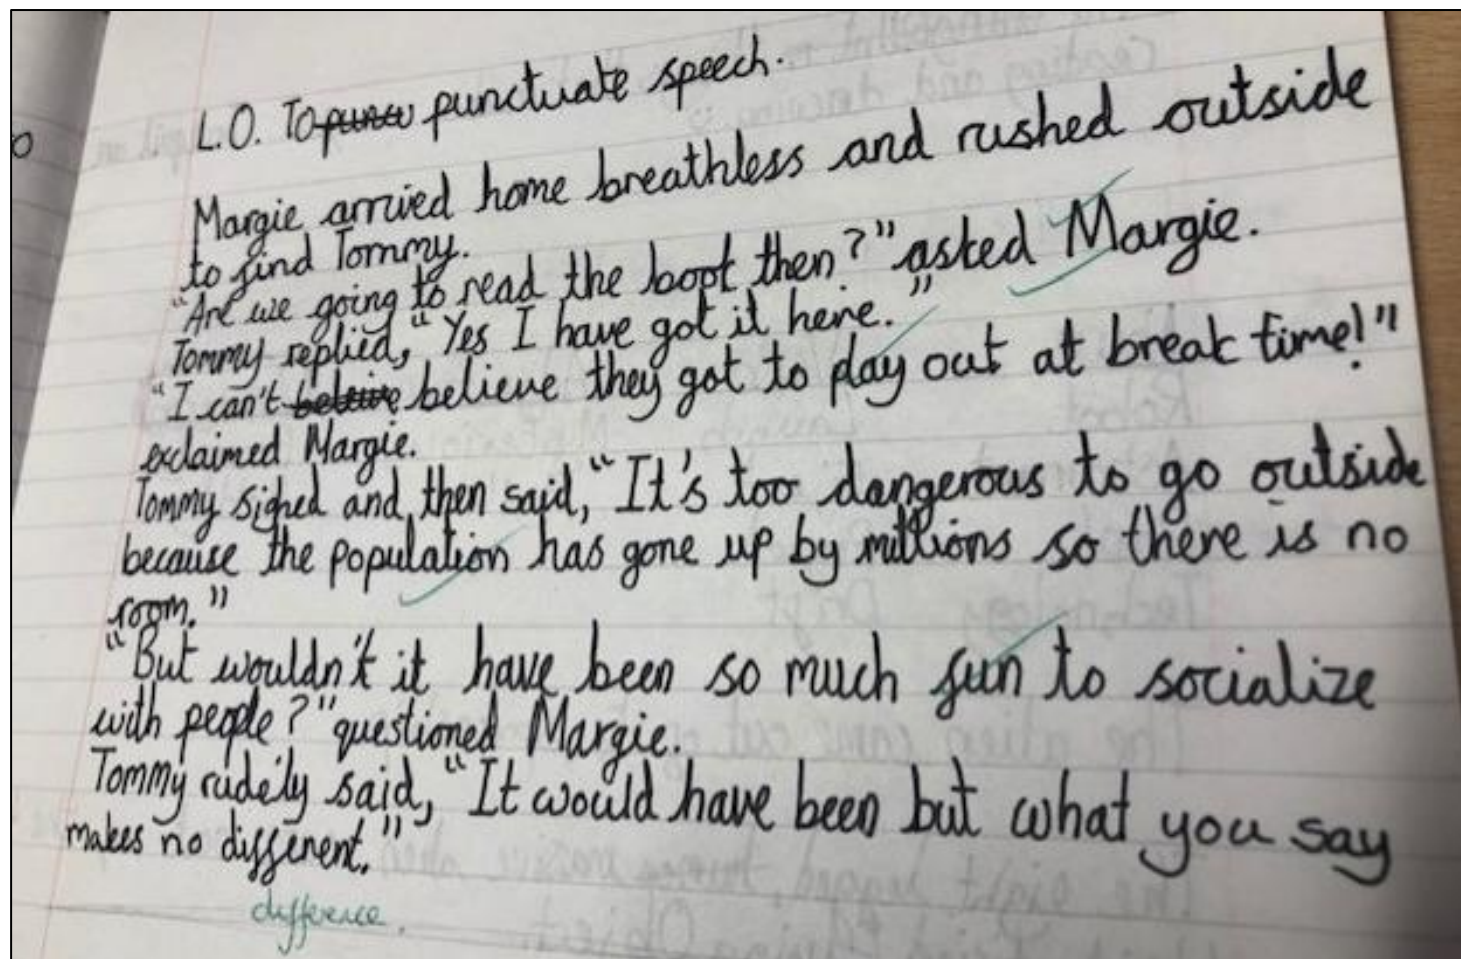 L.O. To punctuate speech.
Margie arrived home breathless and rushed outside
to find Tommy.
"Are we going to read the book then?" asked Margie.
Tommy replied, "Yes I have got it here."
"I can't believe they got to play out at break time!"
exclaimed Margie.
Tommy sighed and then said, "It's too dangerous to go outside
because the population has gone up by millions so there is no
room."
"But wouldn't it have been so much fun to socialize
with people?" questioned Margie.
Tommy rudely said, "It would have been but what you say
makes no different."
difference.